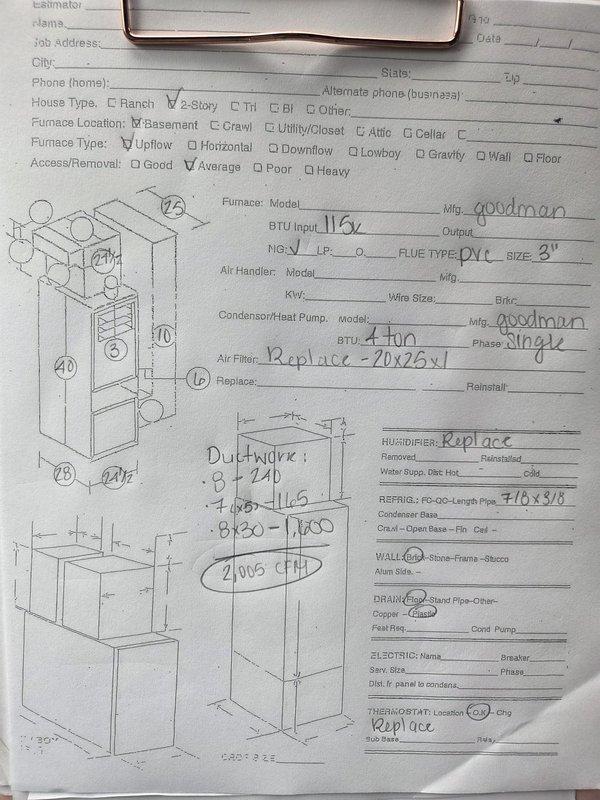 Estimator
Name:
Job Address: Date / /
City: State: Zip
Phone (home): Alternate phone (business)
House Type. ☐ Ranch ☑ 2-Story ☐ Tri ☐ Bi ☐ Other:
Furnace Location: ☑ Basement ☐ Crawl ☐ Utility/Closet ☐ Attic ☐ Cellar ☐
Furnace Type: ☑ Upflow ☐ Horizontal ☐ Downflow ☐ Lowboy ☐ Gravity ☐ Wall ☐ Floor
Access/Removal: ☐ Good ☑ Average ☐ Poor ☐ Heavy
25
21 1/2
3
10
40
6
28
24 1/2
Furnace: Model Mfg. goodman
BTU Input 115k Output
NG: ✓ LP: O. FLUE TYPE: PVC SIZE: 3"
Air Handler: Model Mfg.
KW: Wire Size: Brkr:
Condensor/Heat Pump. Model: Mfg. goodman
BTU: 4 ton Phase Single
Air Filter: Replace - 20x25x1
Replace: Reinstall:
Ductwork:
· 8 - 240
· 7 (x5) - 165
· 8x30 - 1,600
2,005 CFM
HUMIDIFIER: Replace
Removed Reinstalled
Water Supp. Dist: Hot Cold
REFRIG.: FC-QC-Length Pipe 7/8 x 3/8
Condenser Base
Crawl - Open Base - Fin Ceil -
WALL: Brick-Stone-Frame-Stucco
Alum Side. -
DRAIN: Floor-Stand Pipe-Other-
Copper - Plastic
Feet Req. Cond Pump
ELECTRIC: Name Breaker
Serv. Size Phase
Dist. fr panel to condens.
THERMOSTAT: Location - O.K - Chg
Replace
Sub Base